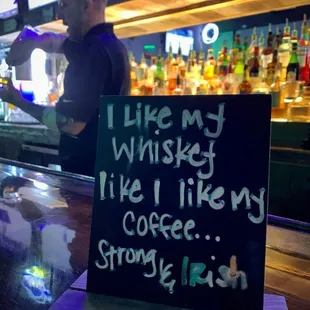 I Like My
Whiskey
like I like my
Coffee...
Strong & IRish